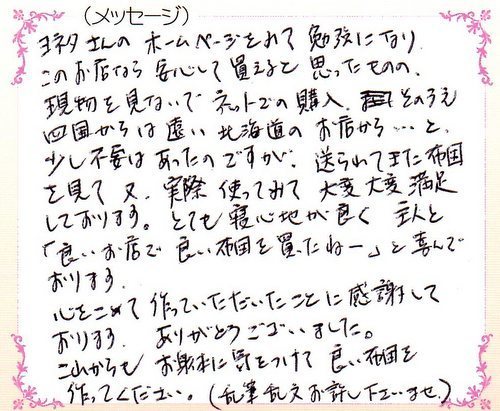 (メッセージ)
ヨネタさんのホームページをみて勉強になり
このお店なら安心して買えると思ったものの、
現物を見ないでネットでの購入、そのうえ
四国からは遠い北海道のお店から…と、
少し不安はあったのですが、送られてきた布団
を見て又、実際使ってみて大変大変満足
しております。とても寝心地が良く主人と
「良いお店で良い布団を買ったねー」と喜んで
おります。
心をこめて作っていただいたことに感謝して
おります。ありがとうございました。
これからもお身体に気をつけて良い布団を
作ってください。(乱筆乱文お許し下さいませ)